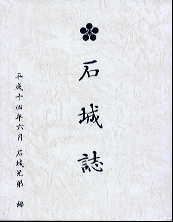 石城誌
平成十四年六月 石城兄弟 編